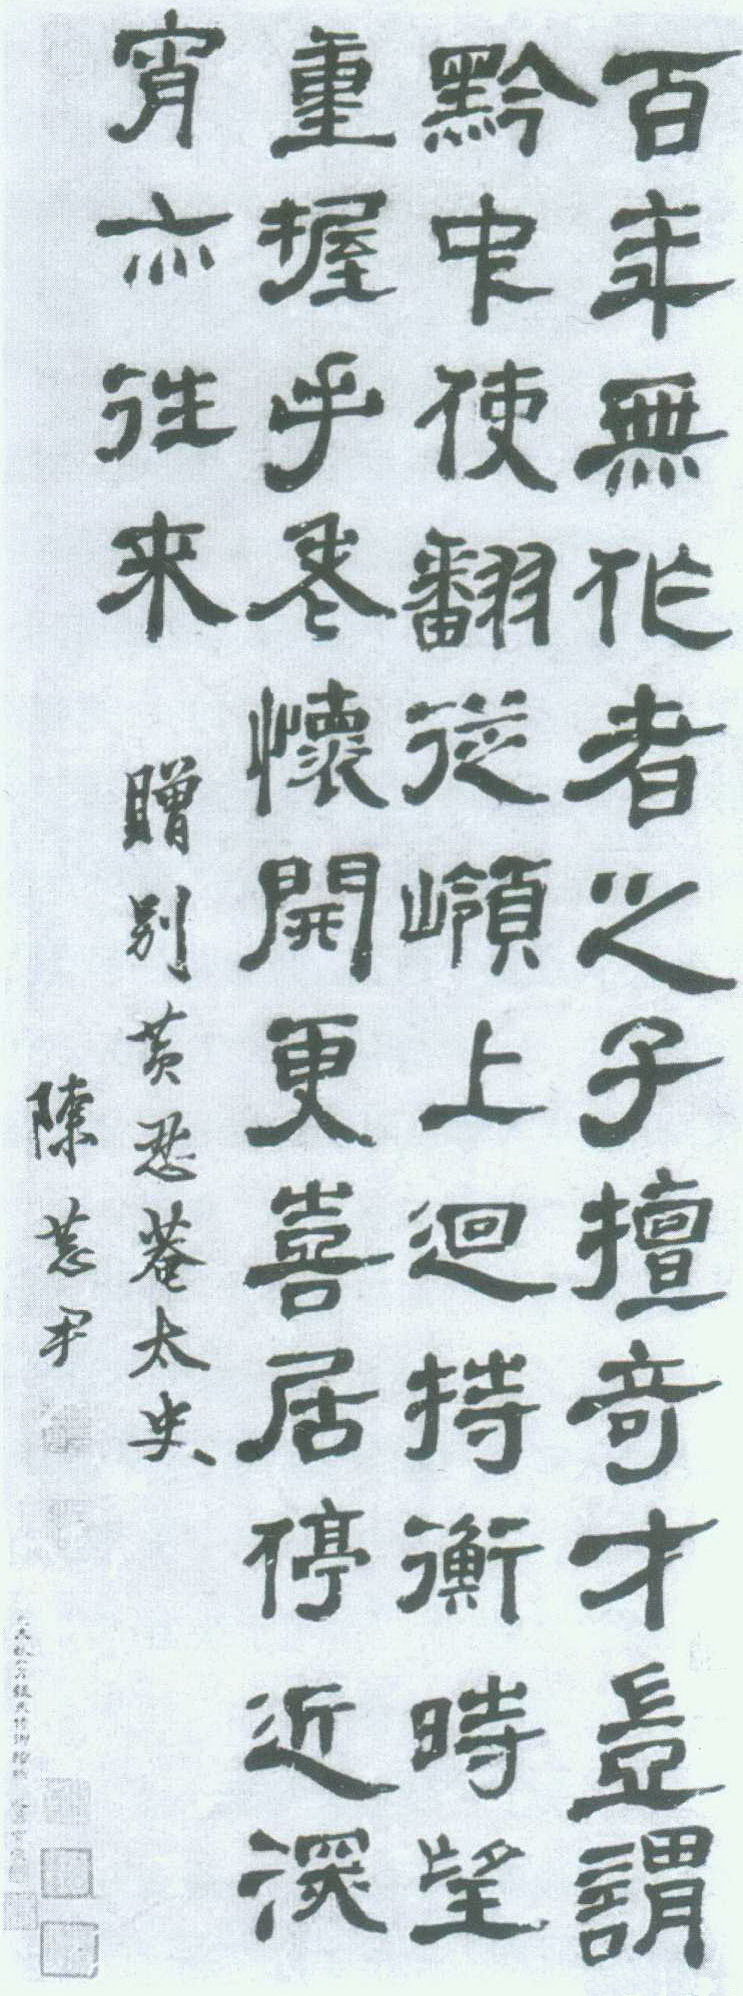 百年無作者之子擅奇才豈謂
黔中使翻從嶺上迴持衡時望
重握手老懷開更喜居停近深
宵亦往来
贈別黃忍菴太史
陳恭尹